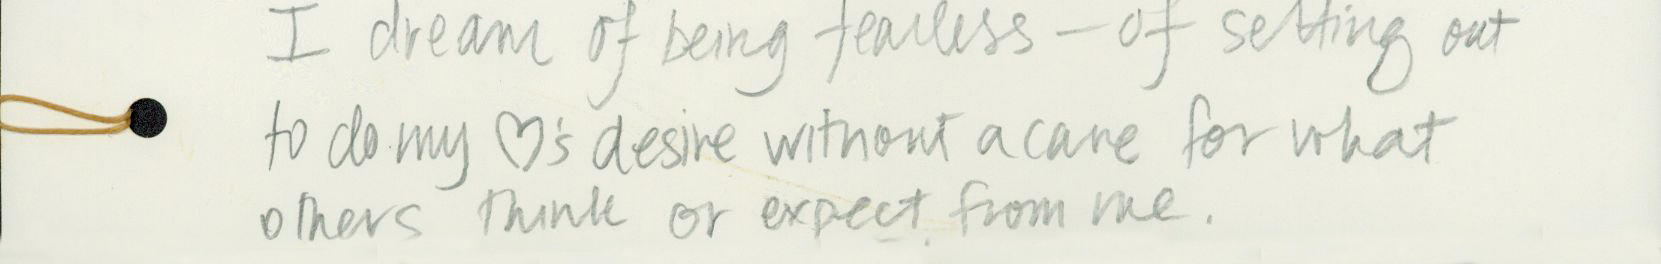 I dream of being fearless – of setting out
to do my ♡'s desire without a care for what
others think or expect from me.